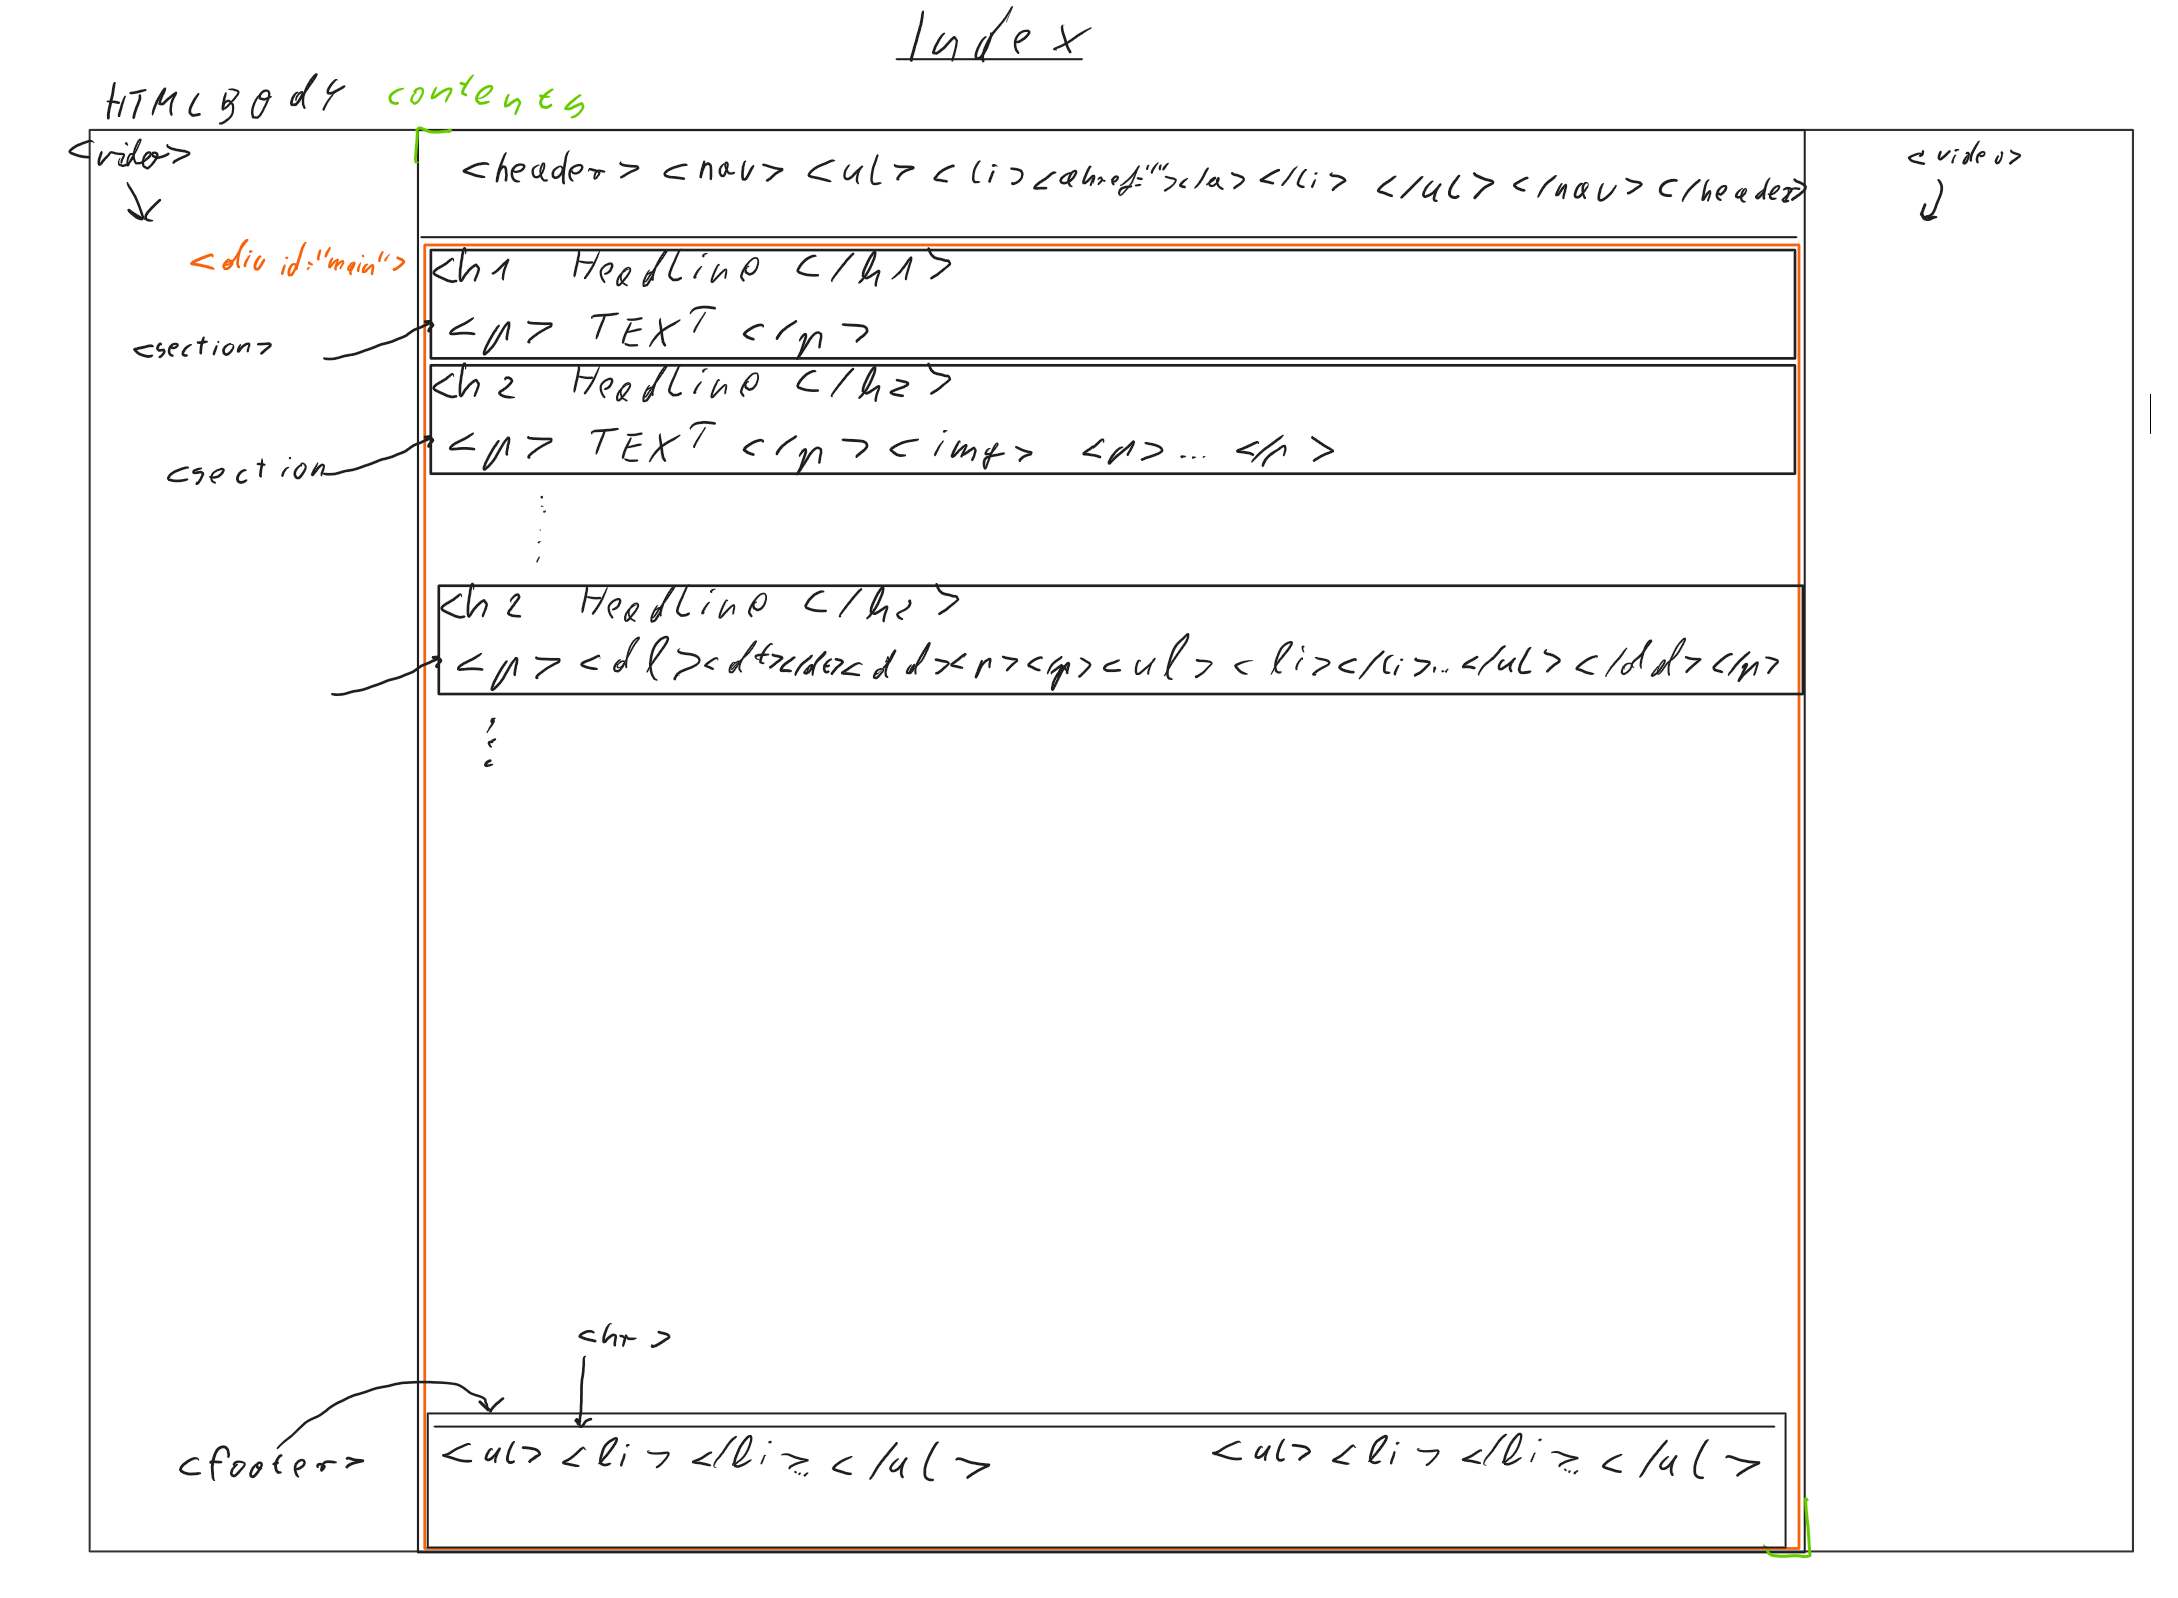 Index
HTML BODY contents
<video>
<header> <nav> <ul> <li> <a href=""></a> </li> </ul> </nav> </header>
<video>
<div id="main">
<h1 Headline </h1>
<p> TEXT </p>
<section>
<h2 Headline </h2>
<p> TEXT </p> <img> <p> ... </p>
<section
<h2 Headline </h2>
<p> <dl> <dt></dt><dd><p><p><ul> <li></li>...</ul> </dd></p>
<hr>
<footer>
<ul> <li> </li>... </ul> <ul> <li> </li>... </ul>